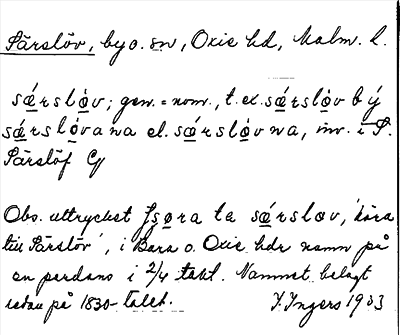 Särslöv, by o. sn, Oxie hd, Malm. l.
sǽrsløv; gen. = nom., t. ex. sǽrsløv bý
sǽrsløvana el. sǽrsløvna, inv. i S.
Särslöf Cy
Obs. uttrycket fsøra te sǽrsløv, 'köra
till Särslöv', i Bara o. Oxie hdr namn på
en perdans i 2/4 takt. Namnet belagt
redan på 1830-talet. I. Ingers 1933